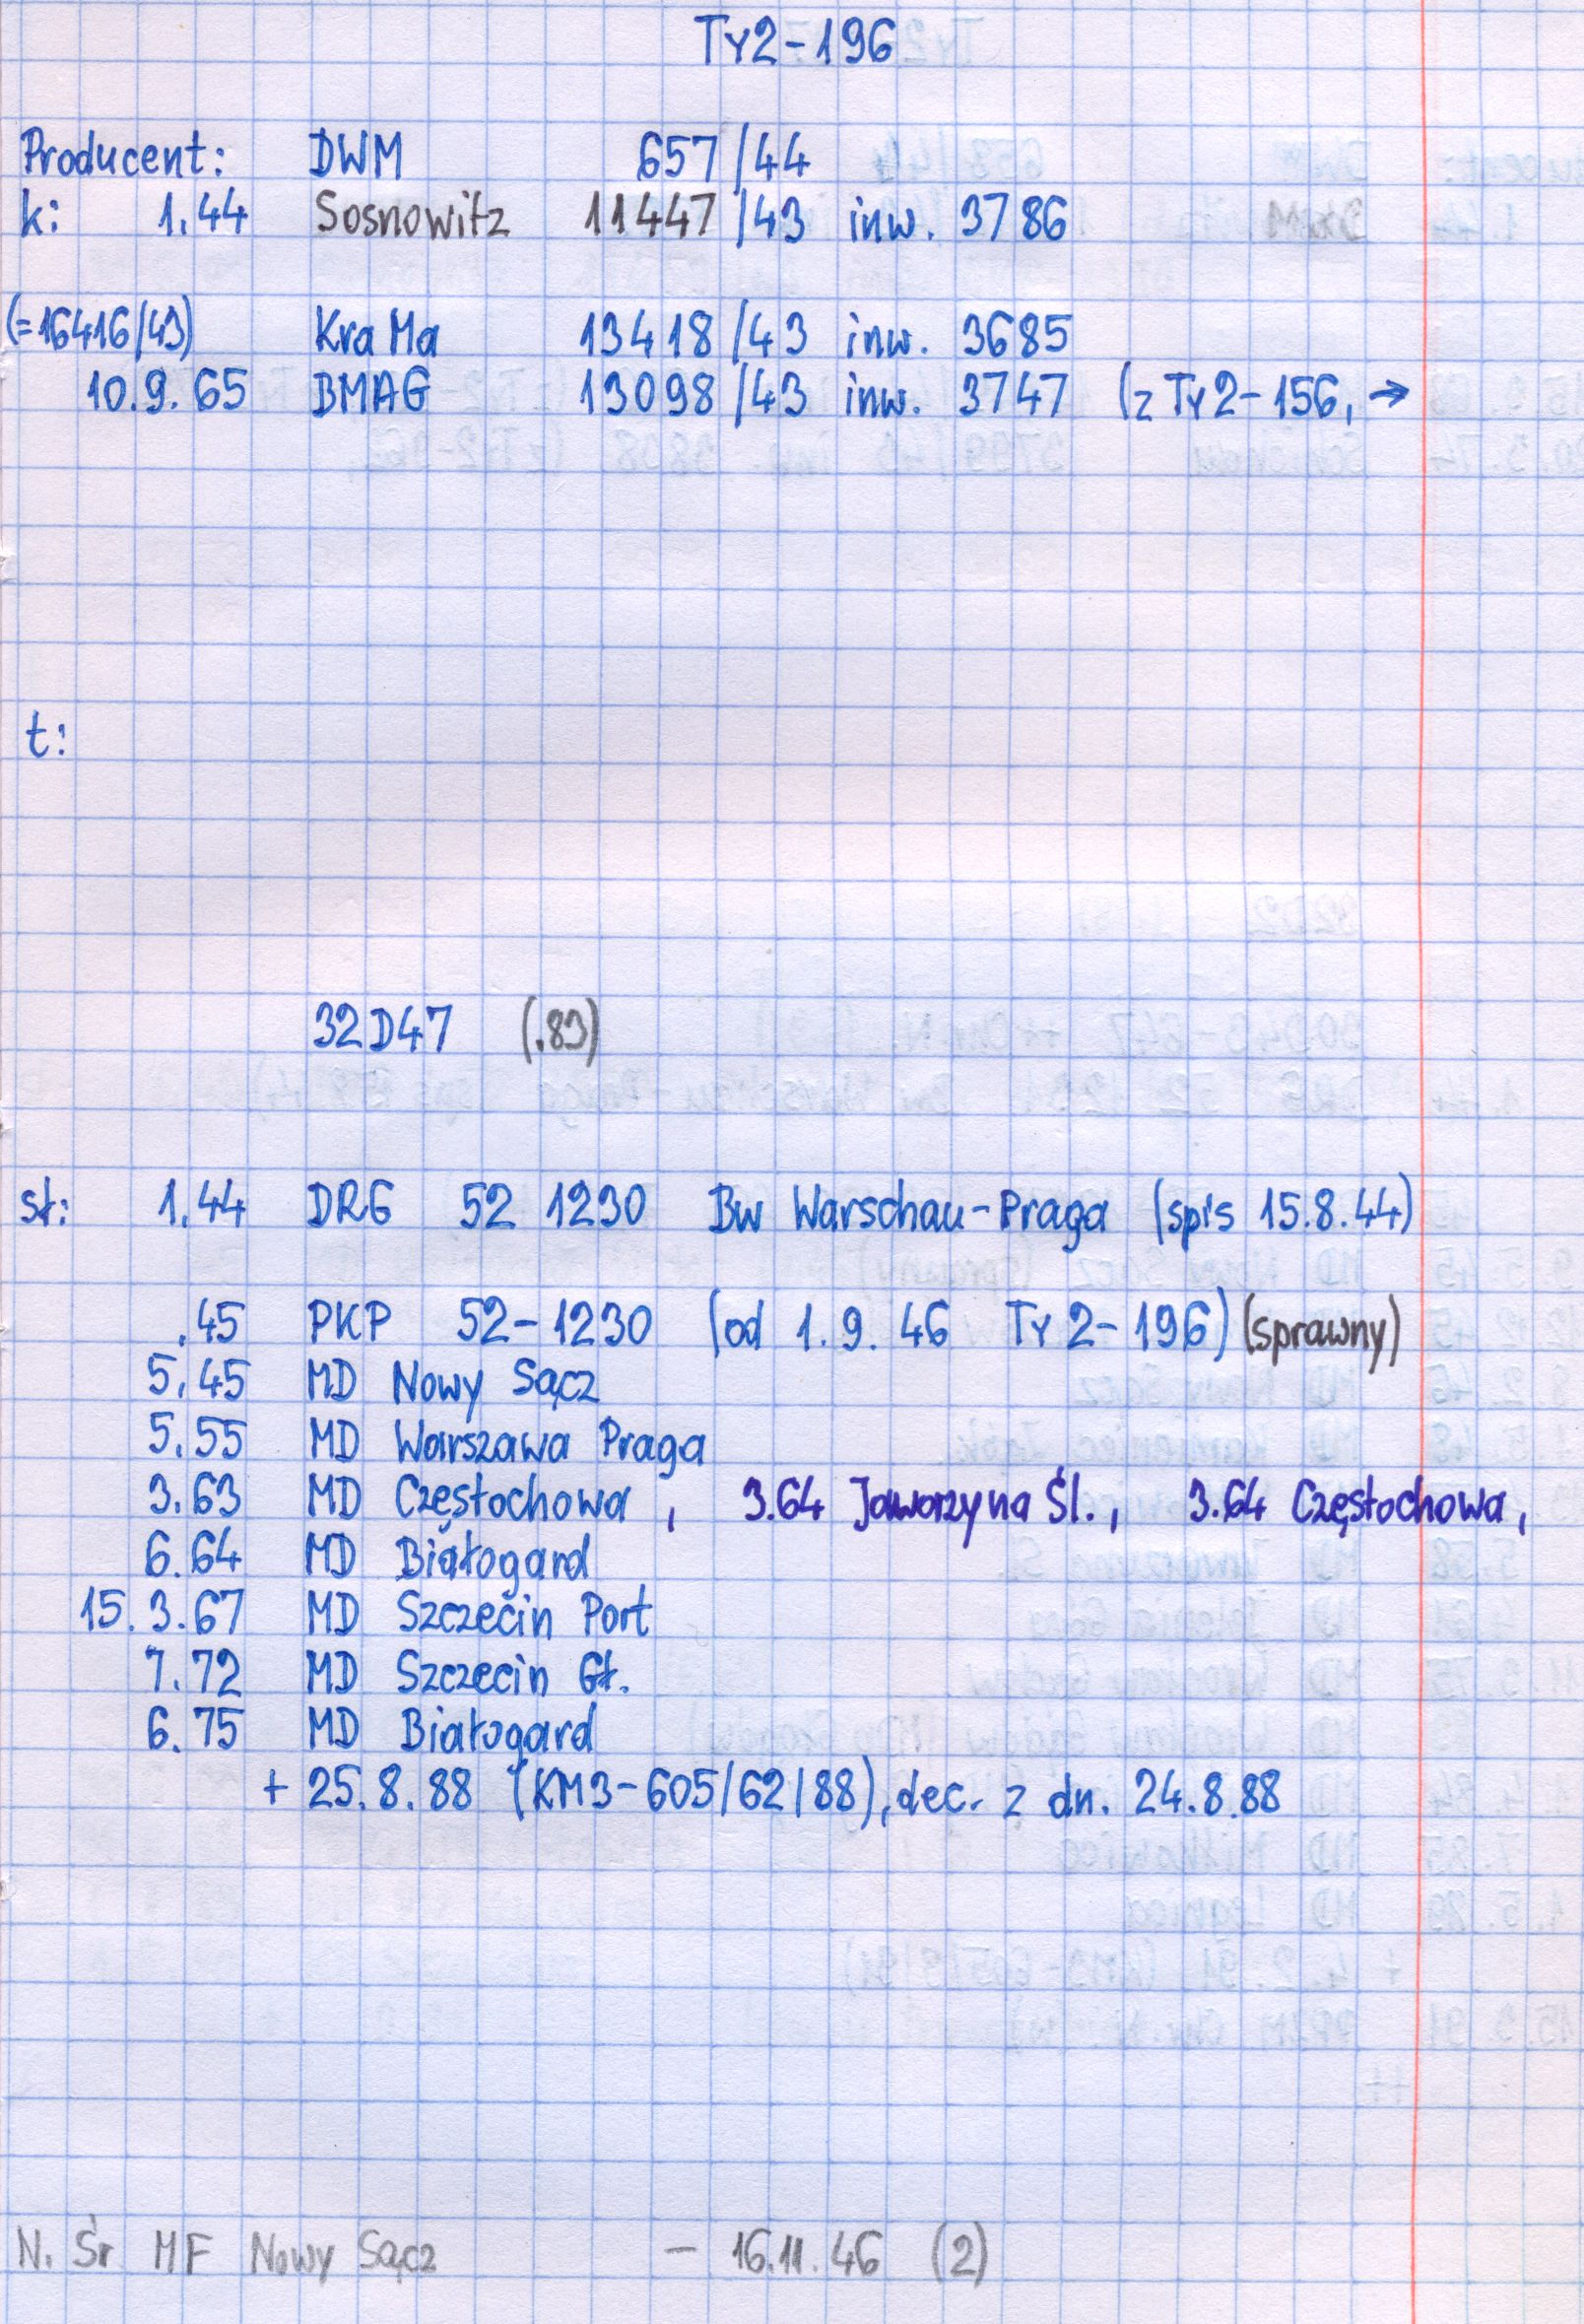 Ty2-196
Producent: DWM 657/44
k: 1.44 Sosnowitz 11447/43 inw. 3786
(=16416/43) KraMa 13418/43 inw. 3685
10.9.65 BMAG 13098/43 inw. 3747 (z Ty2-156, →
t:
32D47 (.83)
st: 1.44 DRG 52 1230 Bw Warschau-Praga (spis 15.8.44)
.45 PKP 52-1230 (od 1.9.46 Ty2-196) (sprawny)
5.45 MD Nowy Sącz
5.55 MD Warszawa Praga
3.63 MD Częstochowa, 3.64 Jaworzyna Śl., 3.64 Częstochowa,
6.64 MD Białogard
15.3.67 MD Szczecin Port
7.72 MD Szczecin Gł.
6.75 MD Białogard
+ 25.8.88 (KM3-605/62/88), dec. z dn. 24.8.88
N. Śr MF Nowy Sącz - 16.11.46 (2)